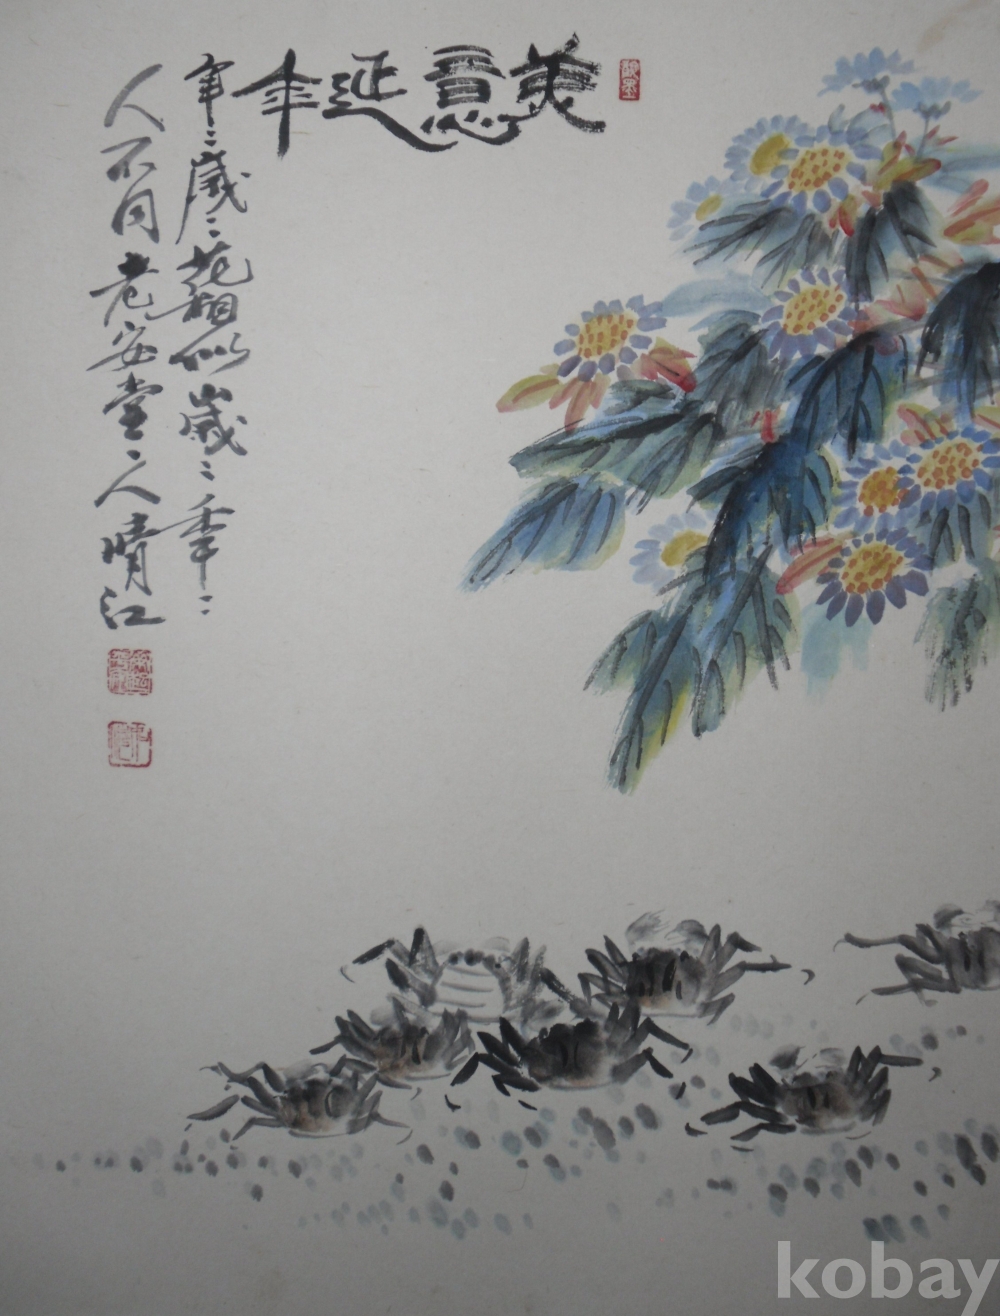 美意延年
年々歲々花相似歲々年々
人不同老安堂主人晴江
kobay